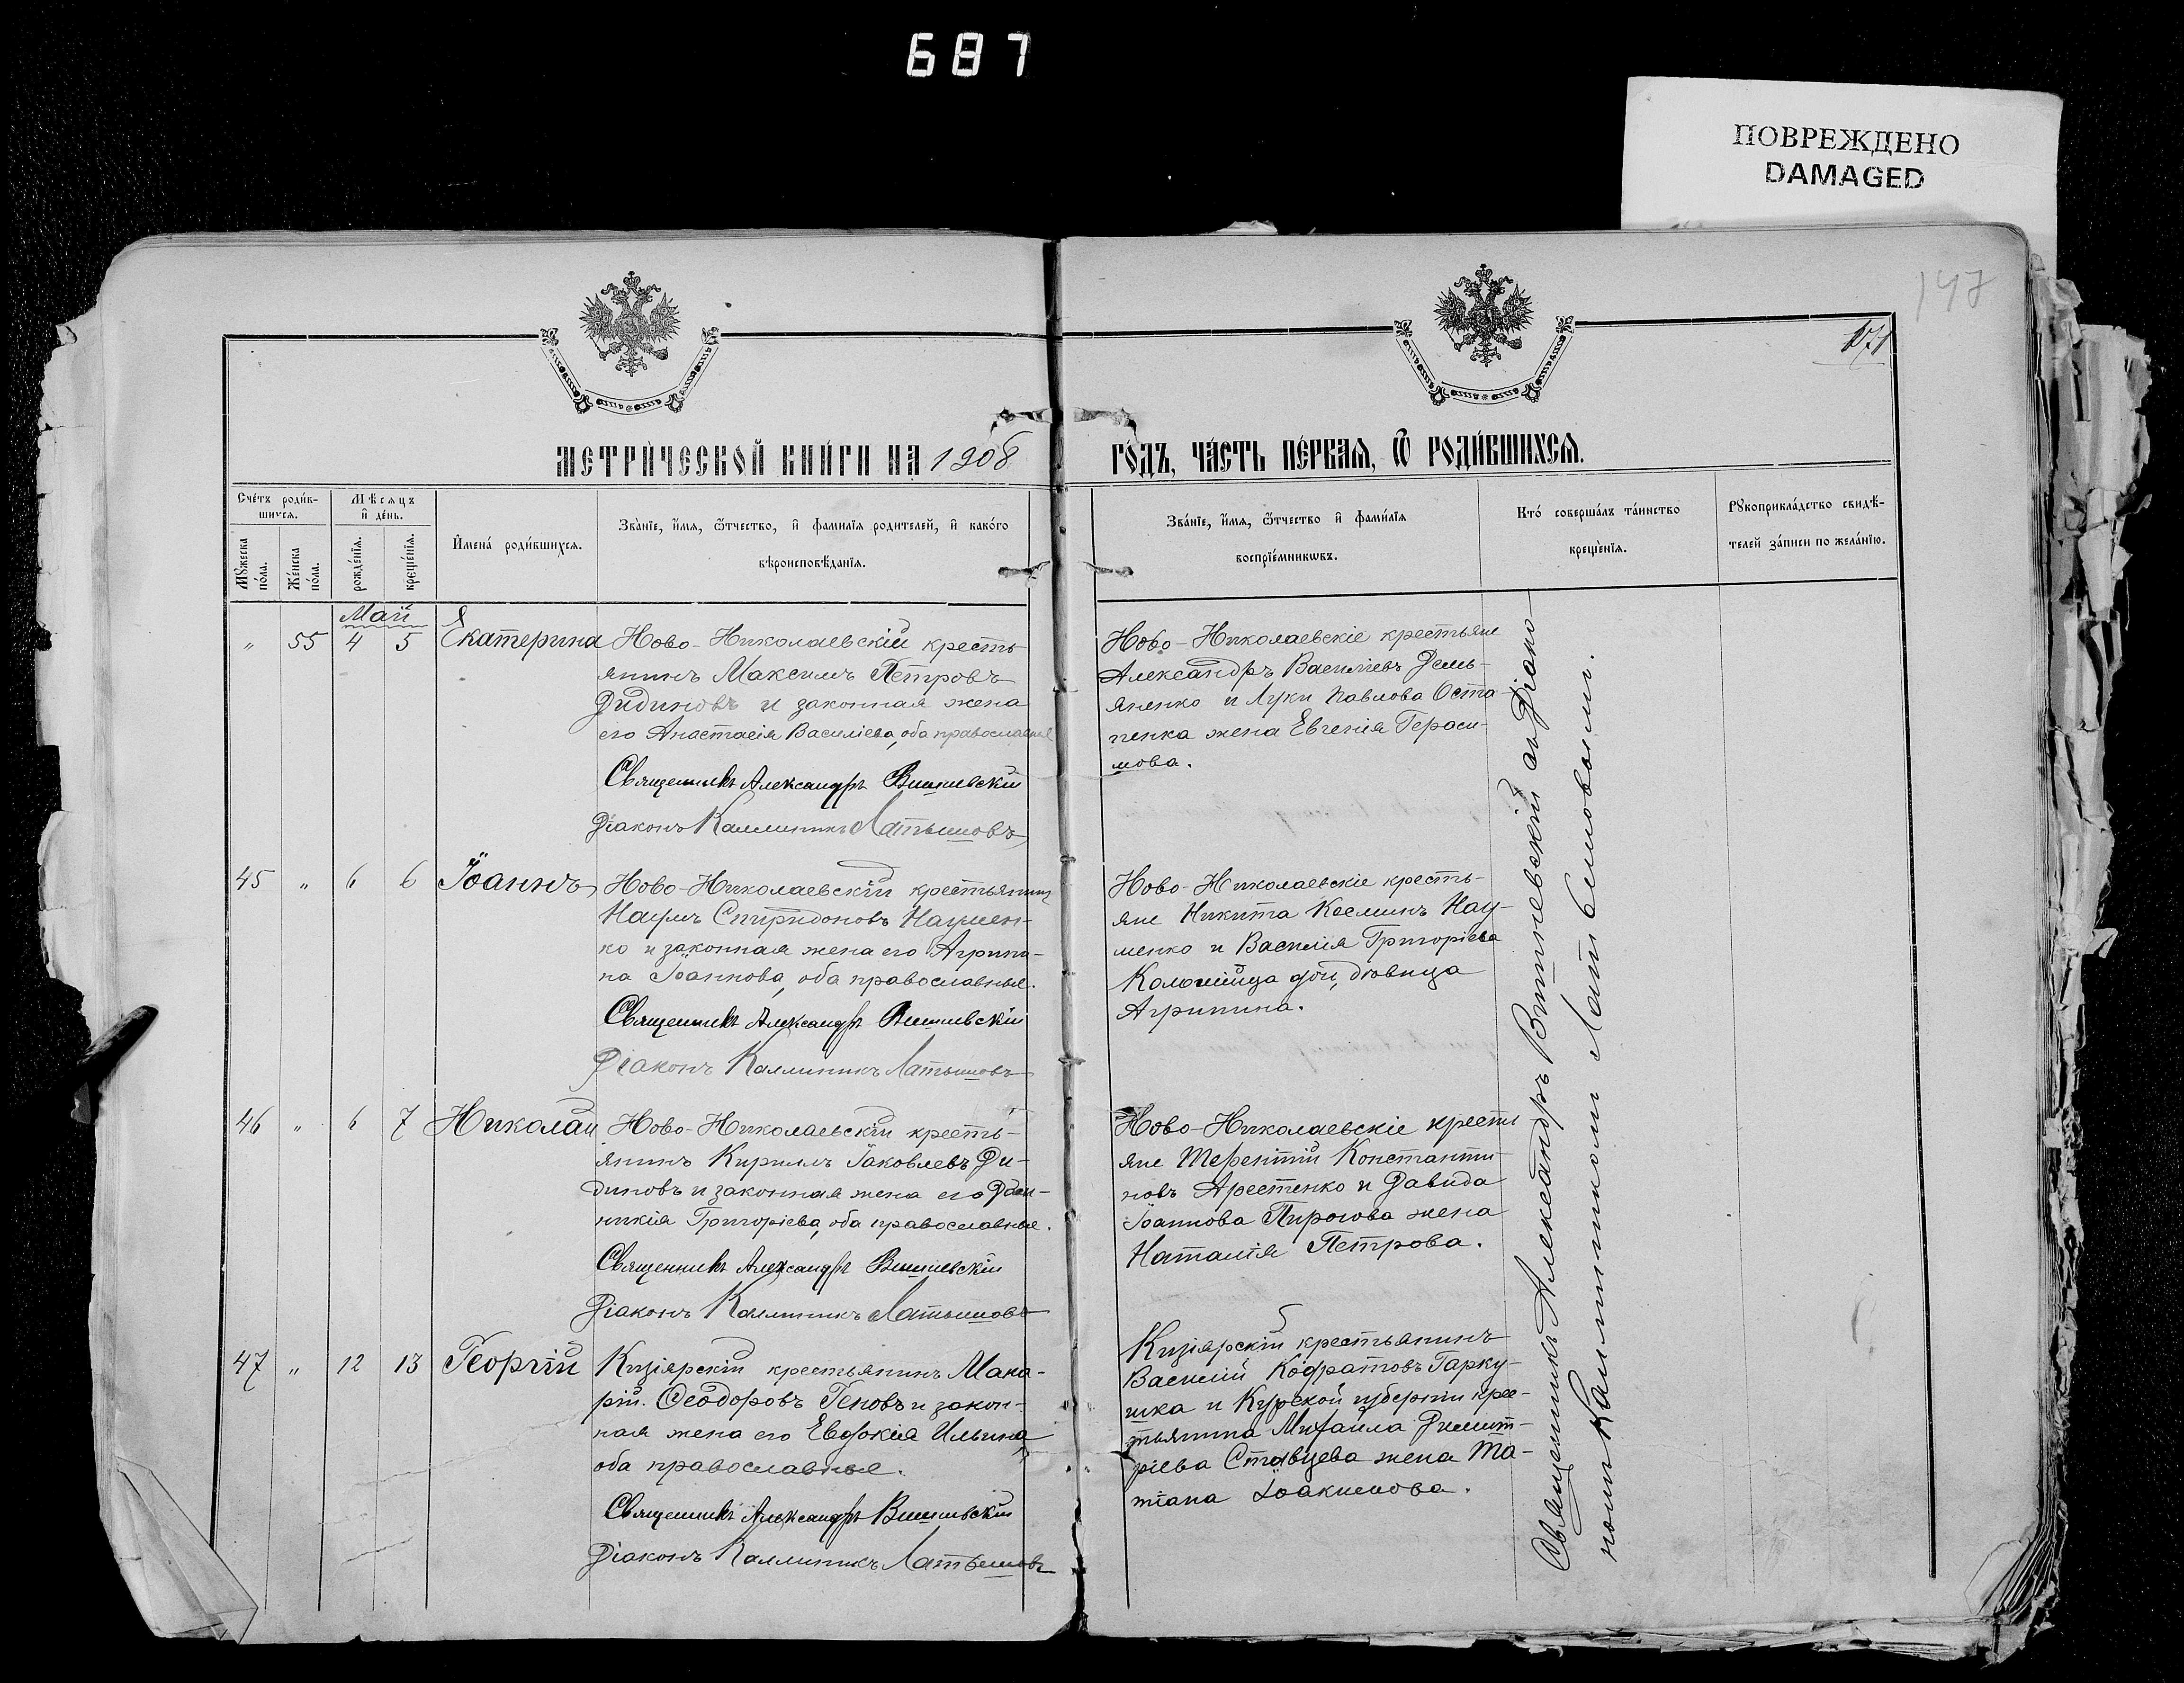 687
ПОВРЕЖДЕНО
DAMAGED
147
171
МЕТРИ́ЧЕСКОЙ КНИ́ГИ НА 1908
ГО́ДЪ, ЧА́СТЬ ПЕ́РВАЯ, Ѿ РОДИ́ВШИХСЯ.
Сче́тъ роди́в-
шихся.
Мѣсяцъ
и де́нь.
Му́жеска
по́ла.
Же́нска
по́ла.
рожде́нїя.
креще́нїя.
Имена́ роди́вшихся.
Зва́нїе, и́мя, ѻ́тчество, и фами́лїя родителей, и како́го
вѣроисповѣ́данїя.
Зва́нїе, и́мя, ѻ́тчество и фами́лїя
воспрїе́мникѡвъ.
Кто́ соверша́лъ та́инство
креще́нїя.
Рꙋкоприкла́дство свидѣ́-
телей за́писи по жела́нїю.
Май
" 55 4 5 Екатерина
Ново-Николаевскій кресть-
янинъ Максимъ Петровъ
Дидиновъ и законная жена
его Анастасія Василіева, оба православные
Священникъ Александръ Вишневскій
Діаконъ Каллиникъ Латышовъ
Ново-Николаевскіе крестьяне
Александръ Василіевъ Демь-
яненко и Луки Павлова Оста-
пенка жена Евгенія Гераси-
мова.
45 " 6 6 Іоаннъ
Ново-Николаевскій крестьянинъ
Наумъ Спиридоновъ Наумен-
ко и законная жена его Агрипи-
на Іоаннова, оба православные.
Священникъ Александръ Вишневскій
Діаконъ Каллиникъ Латышовъ
Ново-Николаевскіе кресть-
яне Никита Косминъ Нау-
менко и Василія Григоріева
Коломійца дочь, дѣвица
Агрипина.
46 " 6 7 Николай
Ново-Николаевскій кресть-
янинъ Кириллъ Іаковлевъ Ди-
диновъ и законная жена его Дом-
никія Григоріева, оба православные.
Священникъ Александръ Вишневскій
Діаконъ Каллиникъ Латышовъ
Ново-Николаевскіе кресть
яне Терентій Константи-
новъ Арестенко и Давида
Іоаннова Пирогова жена
Наталія Петрова.
47 " 12 13 Георгій
Кизіярскій крестьянинъ Мака-
рій Ѳеодоровъ Геновъ и закон-
ная жена его Евдокія Ильина
оба православные.
Священникъ Александръ Вишневскій
Діаконъ Каллиникъ Латышовъ
Кизіярскій крестьянинъ
Василій Гарку-
шка и Курской губерніи крес-
тьянина Михаила Димит-
ріева Ставцева жена Та-
тіана Іоакимова.
Священникъ Александръ Вишневскій съ Діако-
номъ Каллиникомъ Латышовымъ.